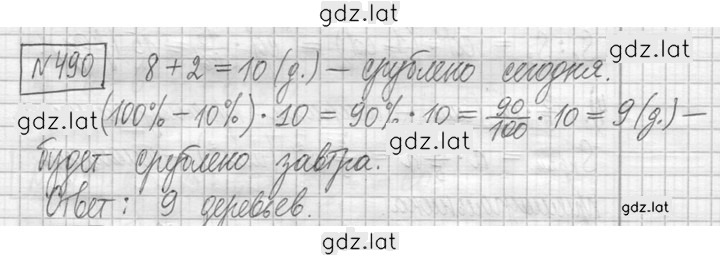 gdz.lat
№490 8 + 2 = 10 (д.) – срублено сегодня.
gdz.lat
(100% – 10%) · 10 = 90% · 10 = 90/100 · 10 = 9 (д.) –
gdz.lat
gdz.lat
будет срублено завтра.
Ответ: 9 деревьев.
gdz.lat
gdz.lat